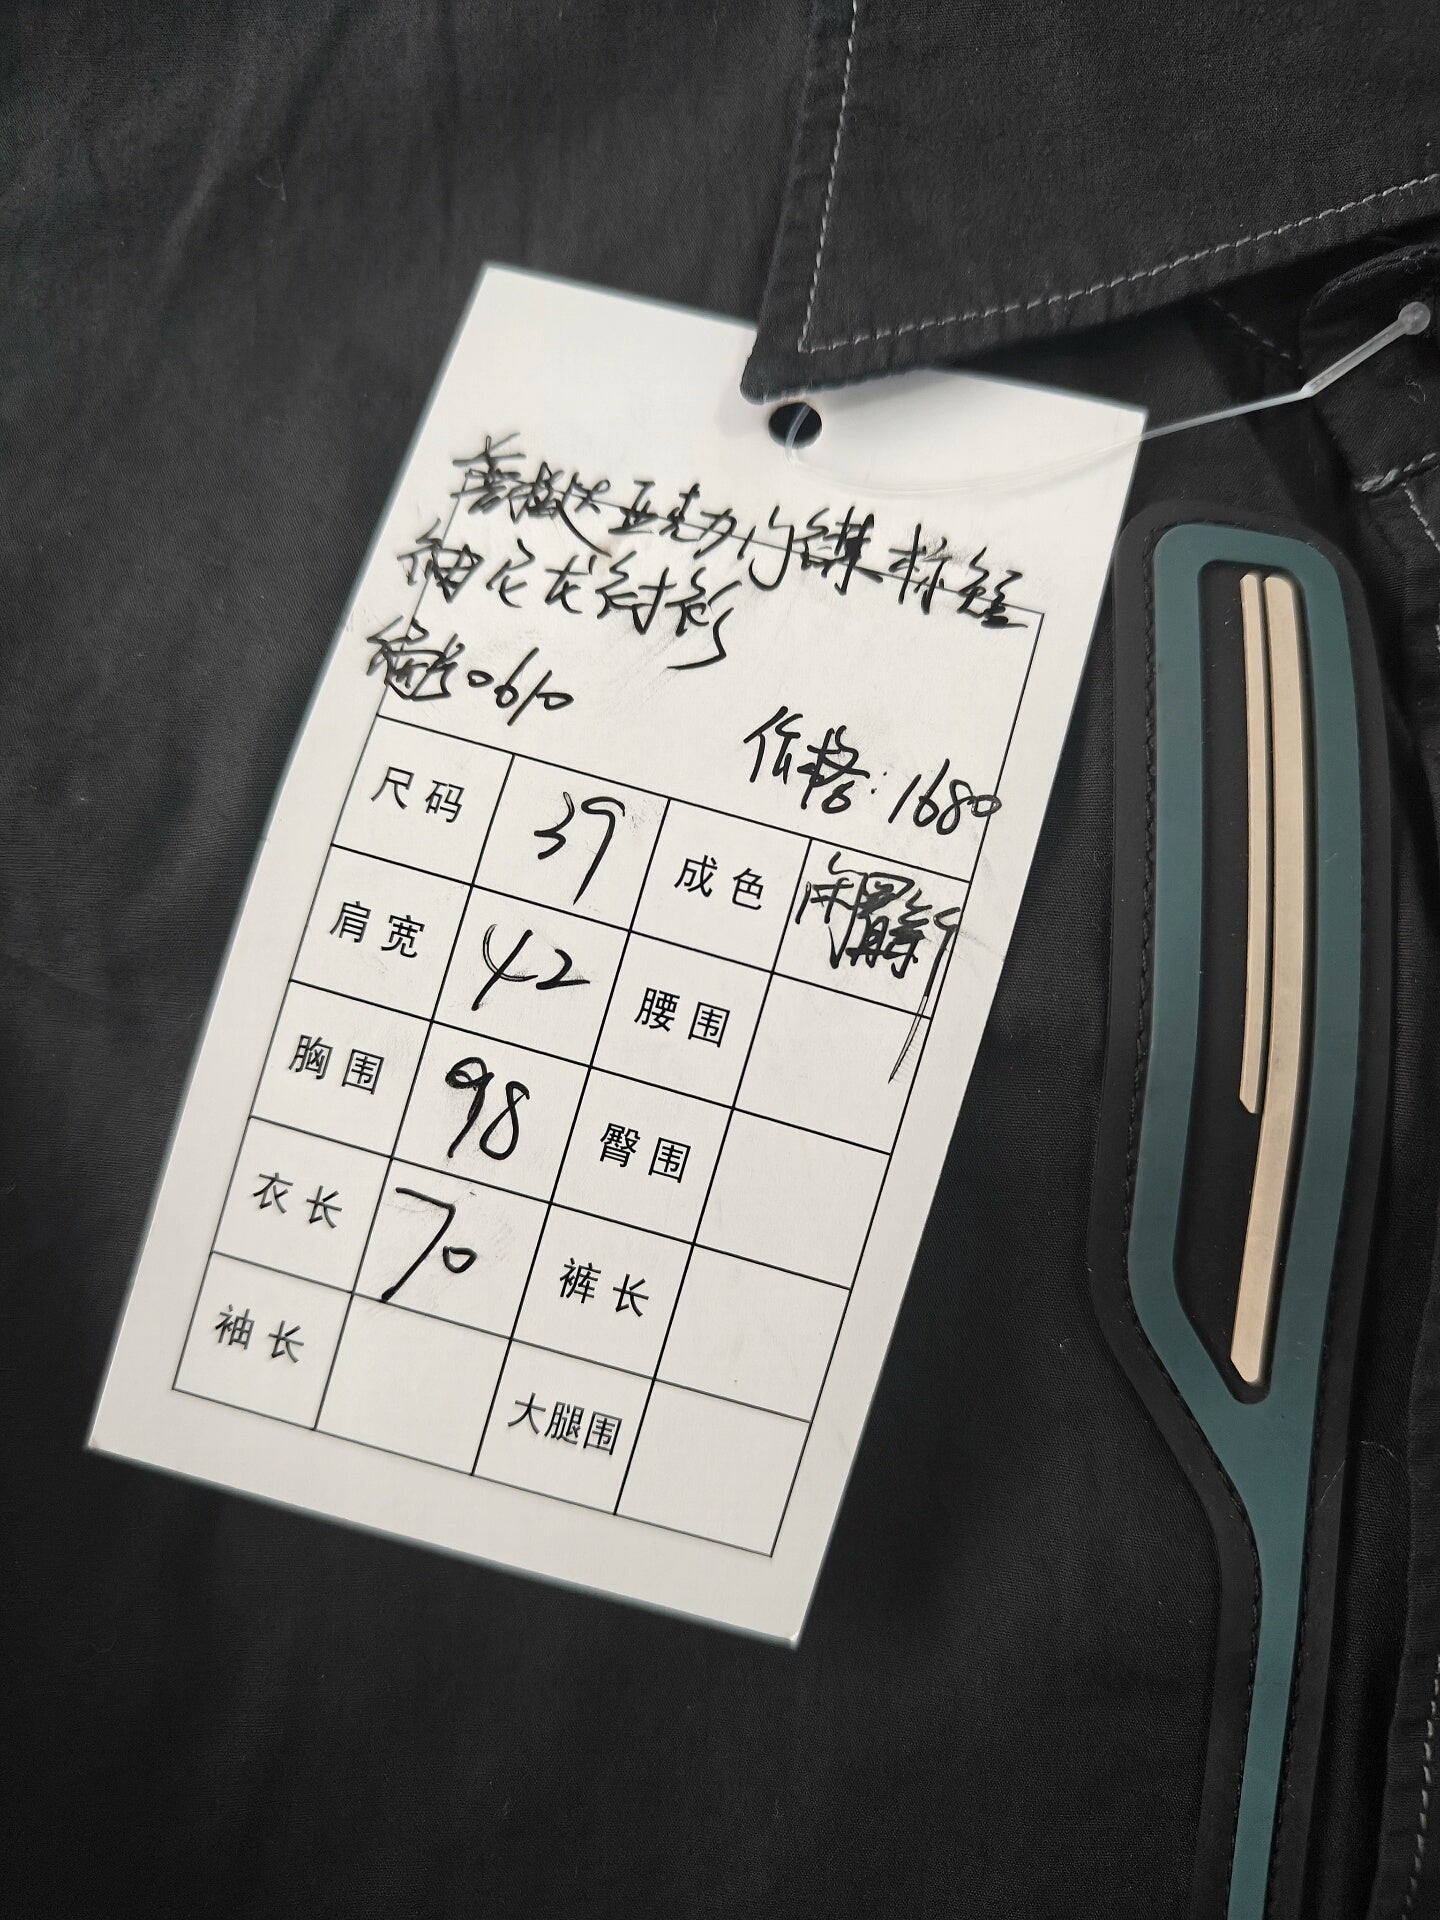 亚克力门襟标短
袖尼龙衬衫
编号0610
价格:1680
尺码 39 成色 闲置新
肩宽 42 腰围
胸围 98 臀围
衣长 70 裤长
袖长 大腿围